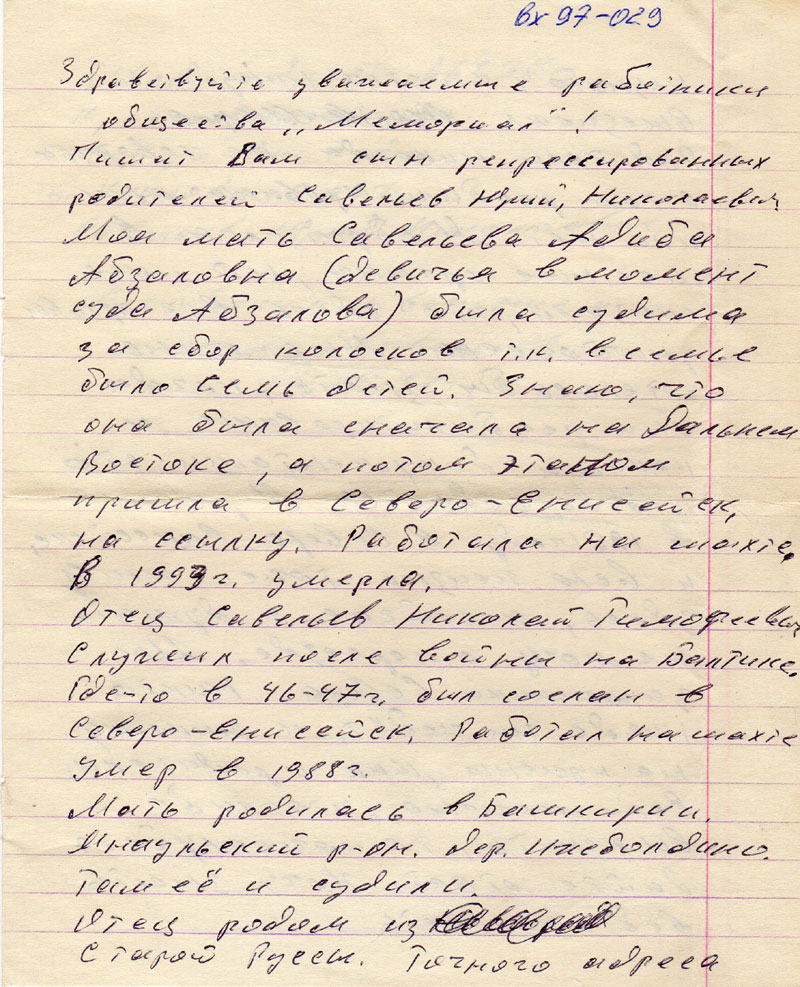 вх 97-029
Здравствуйте уважаемые работники
общества „Мемориал"!
Пишет Вам сын репрессированных
родителей Савельев Юрий, Николаевич
Моя мать Савельева Адиба
Абзаловна (девичья в момент
суда Абзалова) была судима
за сбор колосков т.к. в семье
было семь детей. Знаю, что
она была сначала на Дальнем
Востоке, а потом этапом
пришла в Северо-Енисейск,
на ссылку. Работала на шахте.
В 1993г. умерла.
Отец Савельев Николай Тимофеевич
Служил после войны на Балтике.
Где-то в 46-47г. был сослан в
Северо-Енисейск. Работал на шахте
Умер в 1988г.
Мать родилась в Башкирии.
Янаульский р-он. дер. Ижболдино.
Там её и судили.
Отец родом из
Старой Руссы. Точного адреса